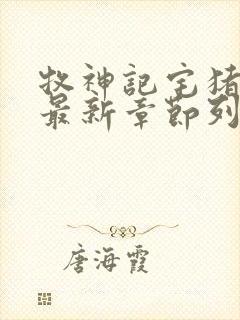 牧神记宅猪
最新章节列
唐海霞